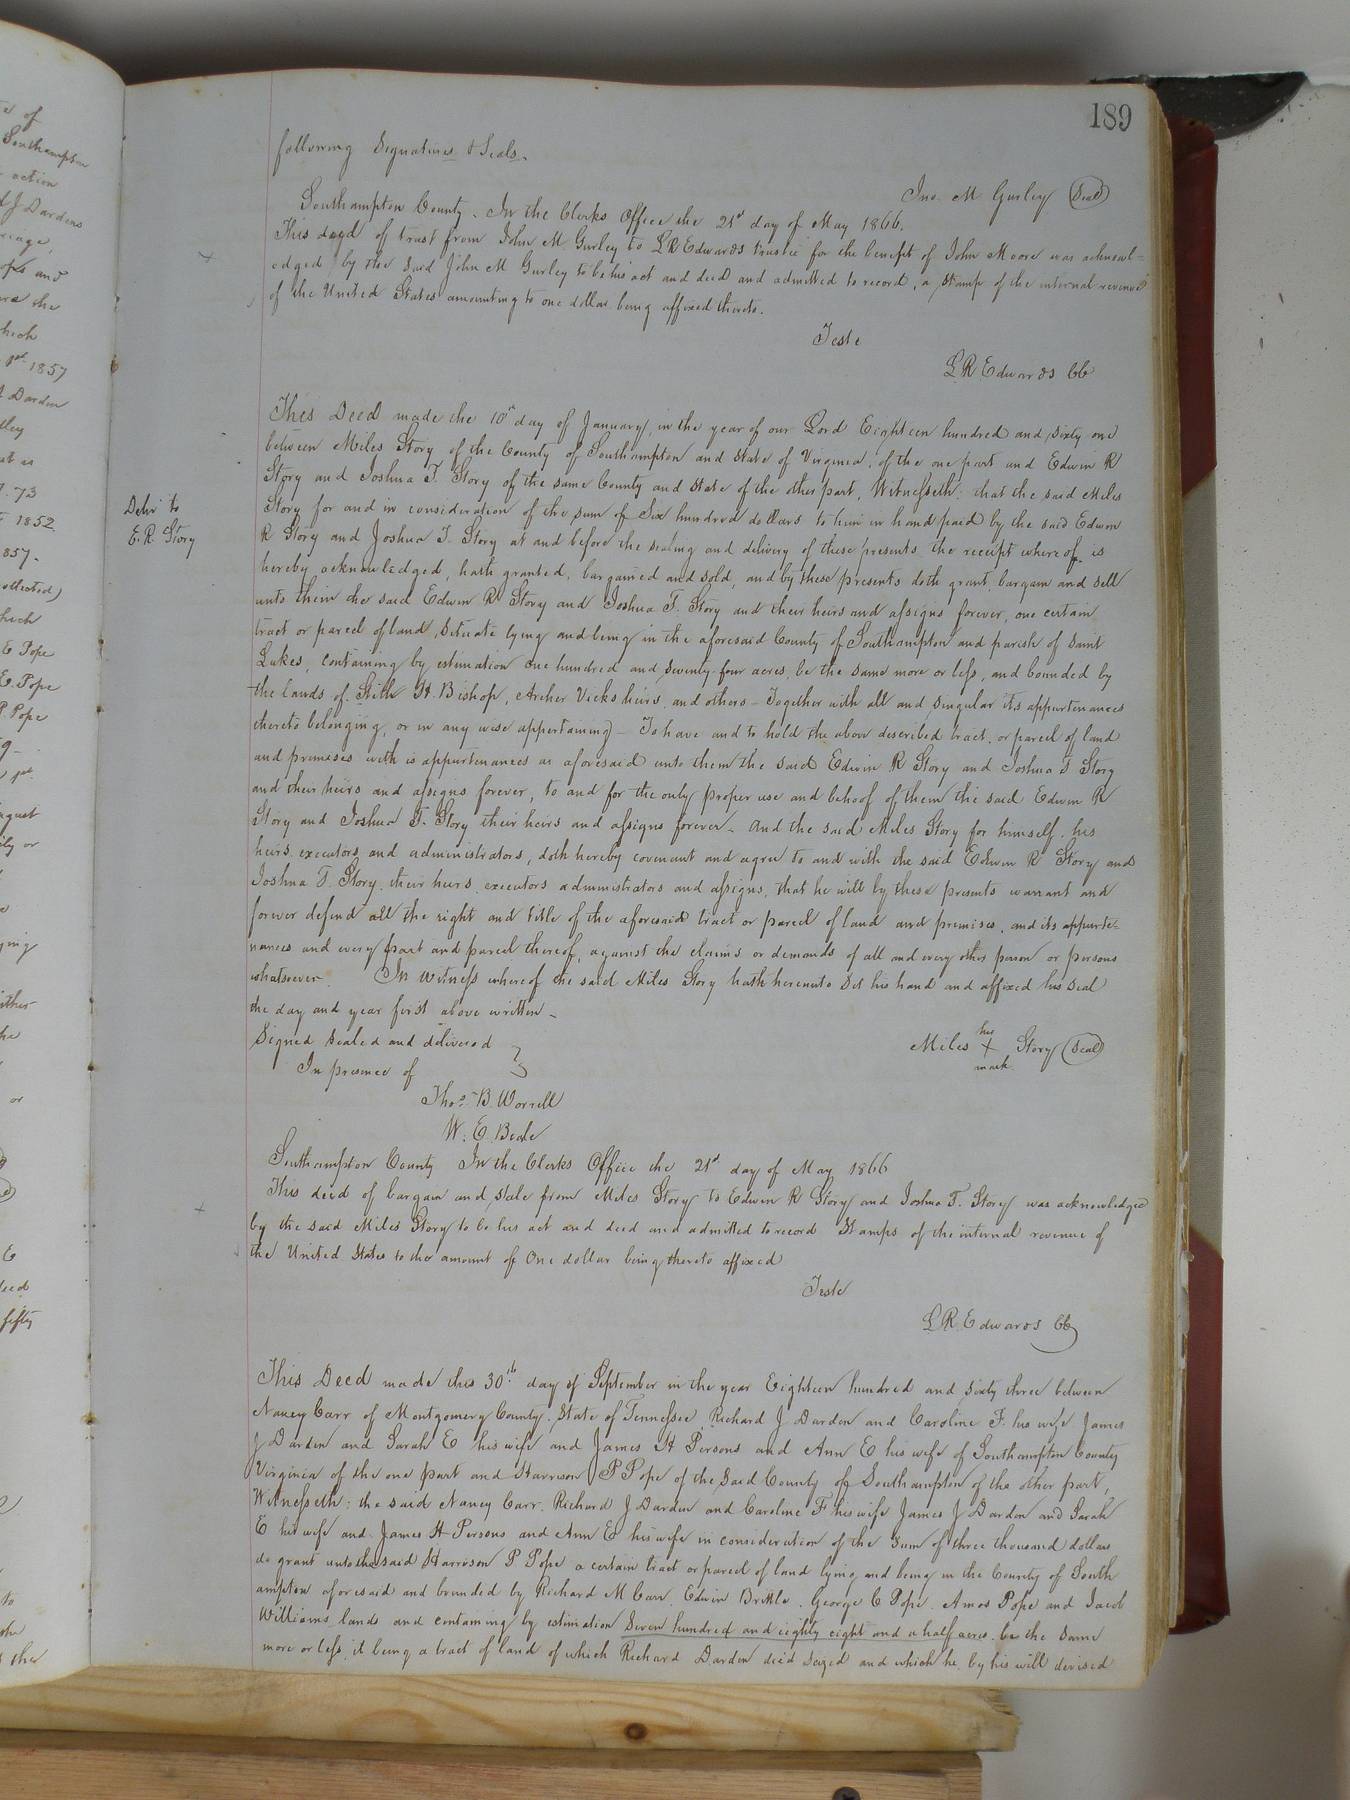 189
following Signatures & Seals.
Jno. M Gurley (Seal)
Southampton County. In the Clerks Office the 21st day of May 1866.
This deed of trust from John M Gurley to L R Edwards trustee for the benefit of John Moore was acknowl-
edged by the said John M Gurley to be his act and deed and admitted to record, a stamp of the internal revenue
of the United States amounting to one dollar being affixed thereto.
Teste
L R Edwards CC
This Deed made the 10th day of January, in the year of our Lord Eighteen hundred and sixty one
between Miles Story of the County of Southampton and State of Virginia, of the one part and Edwin R
Story and Joshua T. Story of the same County and State of the other part, Witnesseth: that the said Miles
Delr to
E. R. Story
Story for and in consideration of the sum of Six hundred dollars to him in hand paid by the said Edwin
R Story and Joshua T. Story at and before the sealing and delivery of these presents the receipt whereof is
hereby acknowledged, hath granted, bargained and sold, and by these presents doth grant, bargain and sell
unto them the said Edwin R Story and Joshua T. Story and their heirs and assigns forever, one certain
tract or parcel of land, situate lying and being in the aforesaid County of Southampton and parish of Saint
Lukes, containing by estimation One hundred and seventy-four acres, be the same more or less, and bounded by
the lands of Stith H. Bishop, Archer Vicks heirs, and others - Together with all and singular its appurtenances
thereto belonging, or in any wise appertaining - To have and to hold the above described tract, or parcel of land
and premises with is appurtenances as aforesaid unto them the said Edwin R Story and Joshua T Story
and their heirs and assigns forever, to and for the only proper use and behoof of them the said Edwin R
Story and Joshua T. Story their heirs and assigns forever - And the said Miles Story for himself, his
heirs, executors, and administrators, doth hereby covenant and agree to and with the said Edwin R Story and
Joshua T. Story, their heirs, executors administrators and assigns, that he will by these presents warrant and
forever defend all the right and title of the aforesaid tract or parcel of land and premises, and its appurte-
nances and every part and parcel thereof, against the claims or demands of all and every other person or persons
whatsoever. In witness whereof the said Miles Story hath hereunto set his hand and affixed his seal
the day and year first above written -
Signed sealed and delivered
In presence of
his
Miles X Story (Seal)
mark
Thos. B. Worrell
W. E. Beale
Southampton County In the Clerks Office the 21st day of May 1866
This deed of bargain and sale from Miles Story to Edwin R Story and Joshua T. Story was acknowledged
by the said Miles Story to be his act and deed and admitted to record Stamps of the internal revenue of
the United States to the amount of One dollar being thereto affixed
Teste
L R. Edwards CC
This Deed made this 30th day of September in the year Eighteen hundred and sixty three between
Nancy Carr of Montgomery County, State of Tennessee, Richard J Darden and Caroline F. his wife James
J Darden and Sarah E his wife and James H Persons and Ann E his wife of Southampton County
Virginia of the one part and Harrison P Pope of the said County of Southampton of the other part,
Witnesseth: the said Nancy Carr, Richard J Darden and Caroline F his wife James J Darden and Sarah
E his wife and James H Persons and Ann E his wife in consideration of the sum of three thousand dollars
do grant unto the said Harrison P Pope a certain tract or parcel of land lying and being in the County of South
ampton aforesaid and bounded by Richard M Carr, Edwin Brittle, George C Pope, Amos Pope and Jacob
Williams lands and containing by estimation Seven hundred and eighty eight and a half acres, be the same
more or less, it being a tract of land of which Richard Darden died seized and which he by his will devised